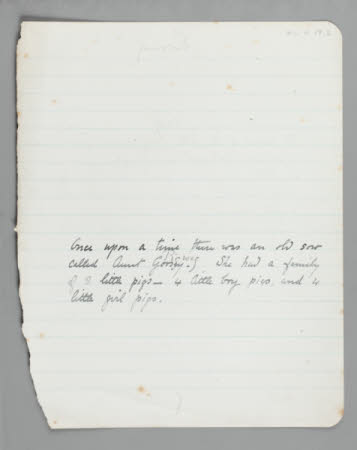 Once upon a time there was an old sow
called Aunt She had a family
of 8 little pigs – 4 little boy pigs, and 4
little girl pigs.